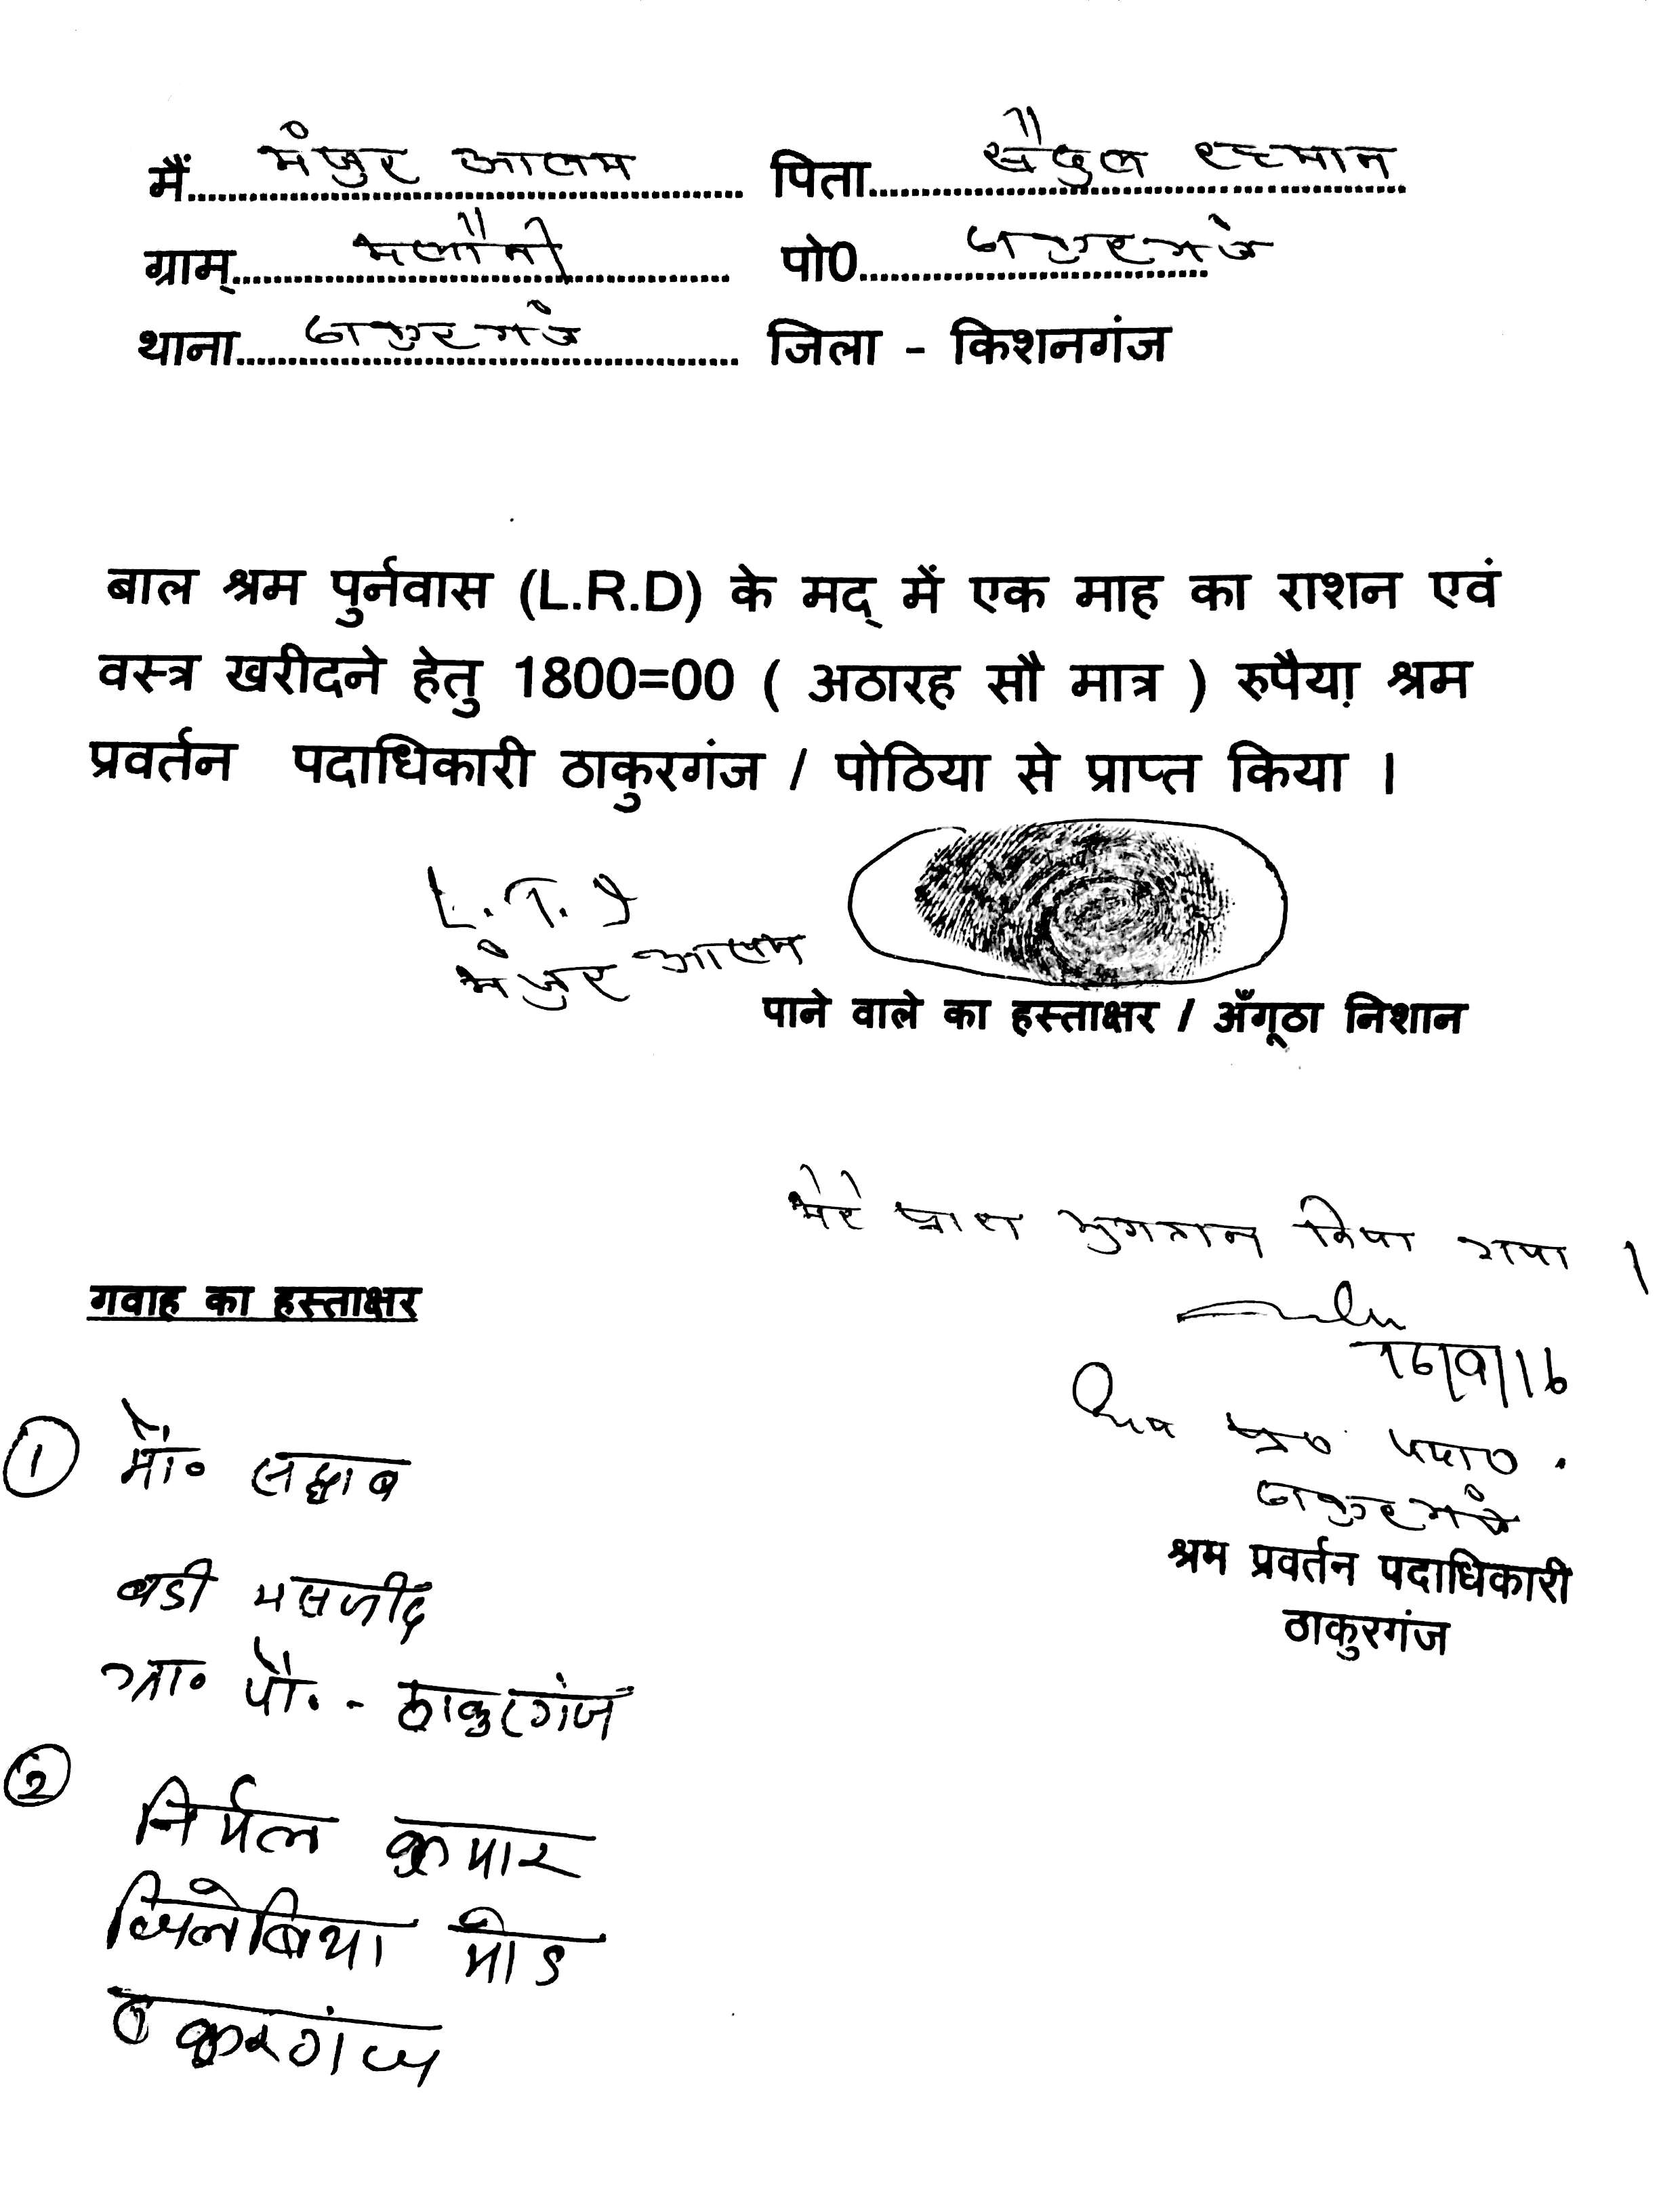 मैं मंजुर आलम पिता सैदुल रहमान
ग्राम् मलानी पो0 ठाकुरगंज
थाना ठाकुरगंज जिला - किशनगंज
बाल श्रम पुर्नवास (L.R.D) के मद् में एक माह का राशन एवं
वस्त्र खरीदने हेतु 1800=00 ( अठारह सौ मात्र ) रुपैया श्रम
प्रवर्तन पदाधिकारी ठाकुरगंज / पोठिया से प्राप्त किया ।
L.T.I
मंजुर आलम
पाने वाले का हस्ताक्षर / अँगूठा निशान
मेरे द्वारा भुगतान किया गया ।
16/9/16
श्रम प्र0 पदा0
ठाकुरगंज
श्रम प्रवर्तन पदाधिकारी
ठाकुरगंज
गवाह का हस्ताक्षर
1 मो॰ सद्दाब
बडी मसजीद
ग्रा॰ पो॰ - ठाकुरगंज
2 निर्मल कुमार
जिलेबिया मोड
ठाकुरगंज